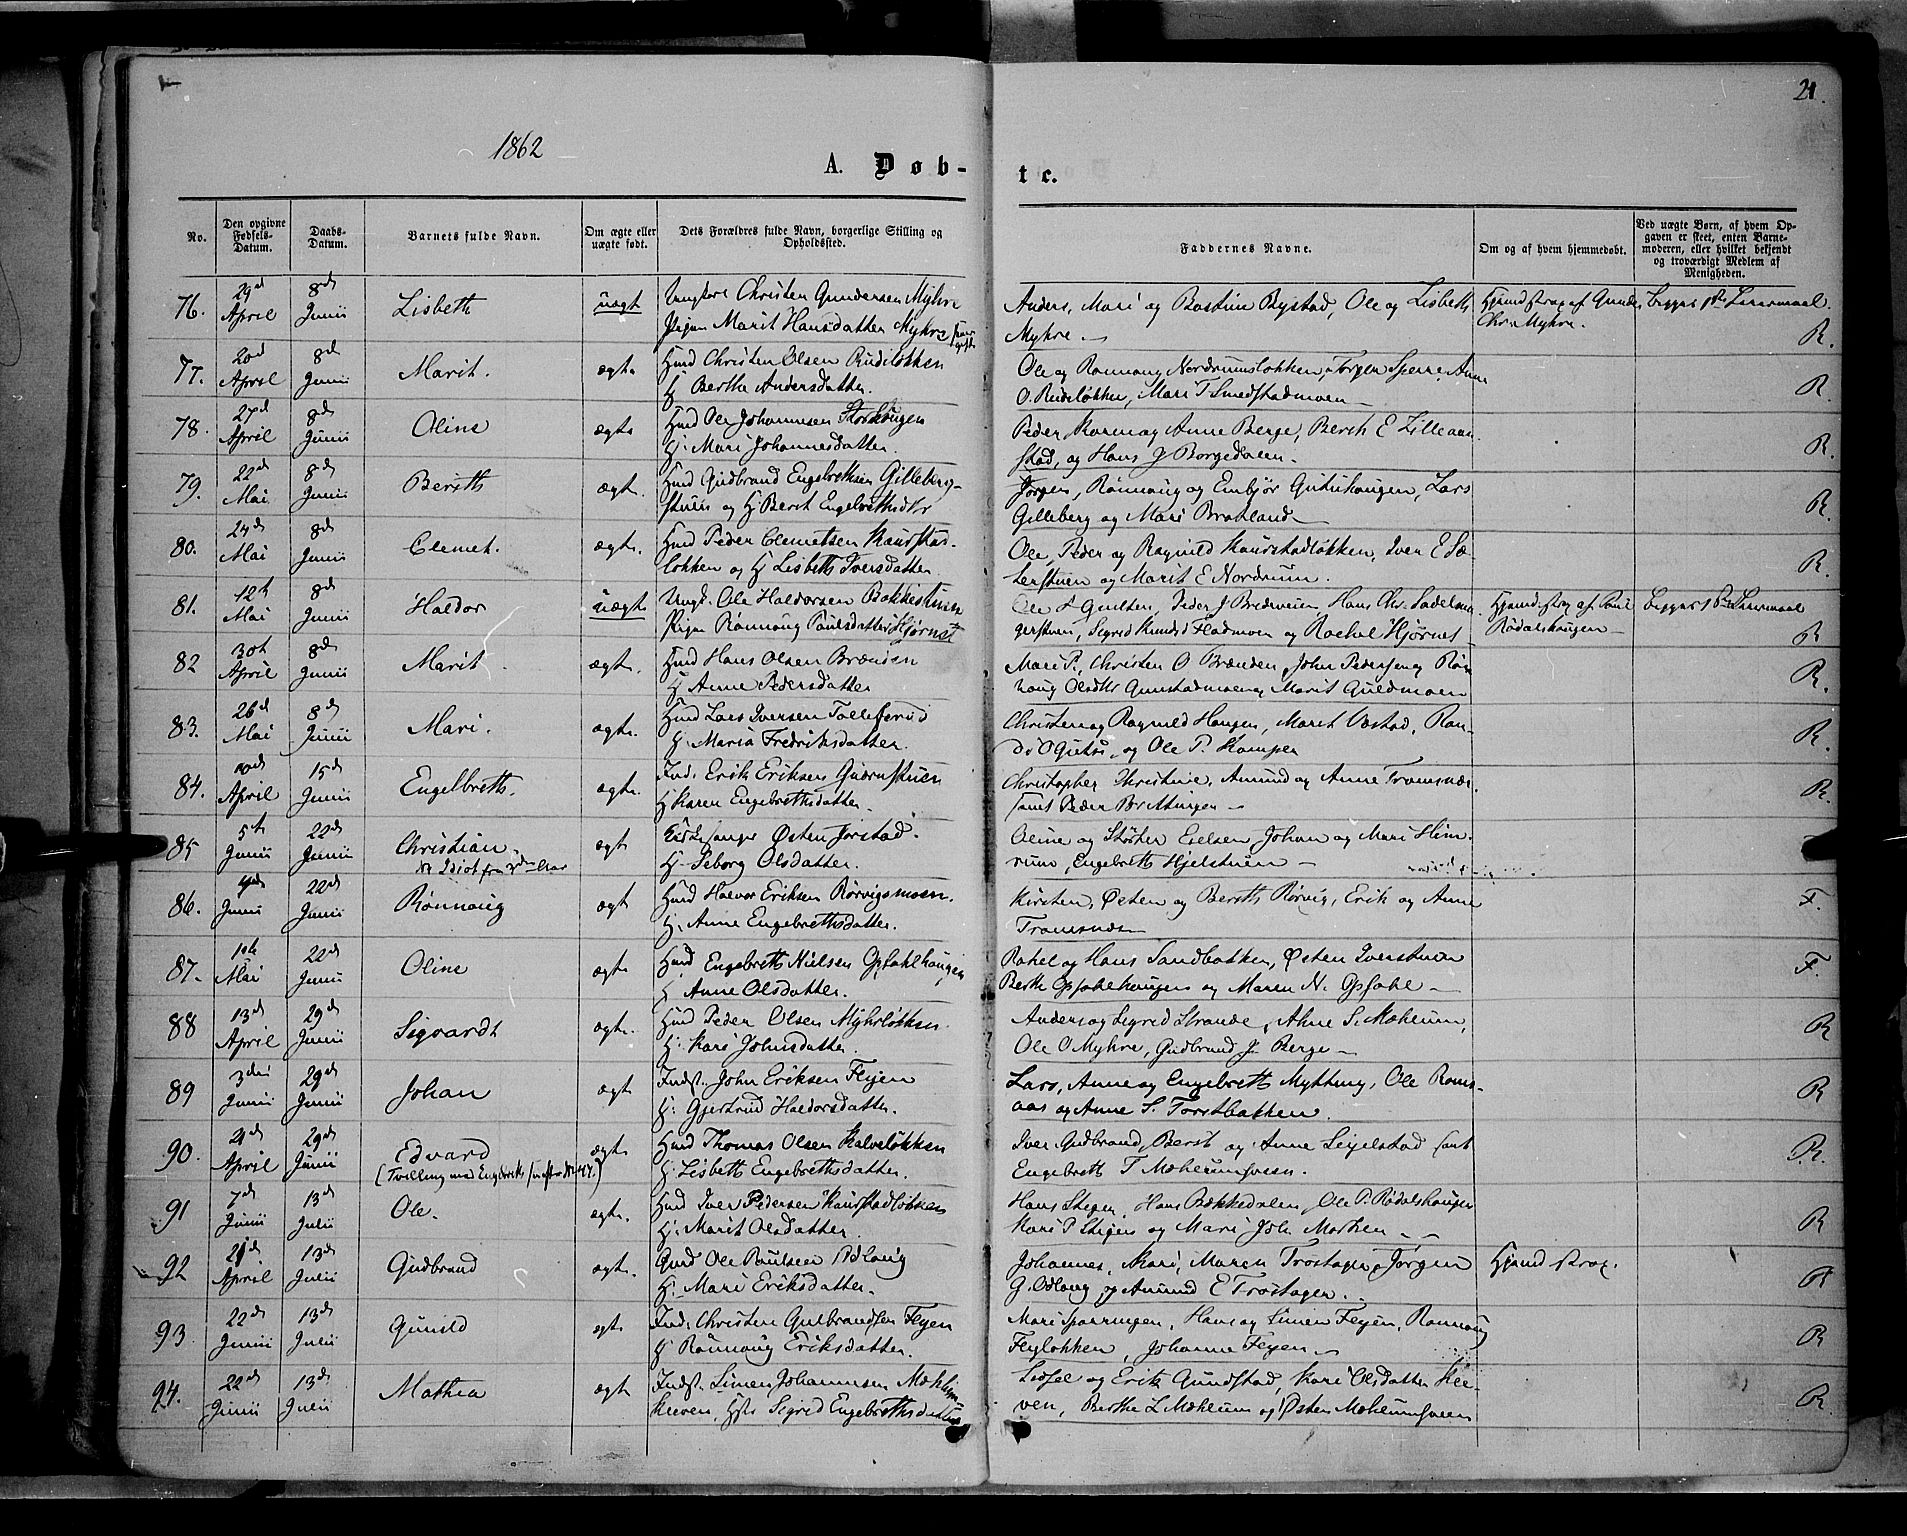 21.
1862
A. Døb-
t c.
No.
Den opgivne Fødsels-Datum.
Daabs-Datum.
Barnets fulde Navn.
Om ægte eller uægte født.
Dets Forældres fulde Navn, borgerlige Stilling og Opholdssted.
Faddernes Navne.
Om og af hvem hjemmedøbt.
Ved uægte Børn, af hvem Opgaven er skeet, enten Barnemoderen, eller hvilket bekjendt og troværdigt Medlem af Menigheden.
76. 29d April 8de Junii Lisbeth uægt Ungkarl Christen Gundersen Myhre
Pigen Marit Hansdatter Myhre
Anders, Mari og Bastine Bystad, Ole og Lisbeth
Myhre
Begges 1ste Leiermaal. R.
77. 20d April 8de Junii Marit. ægte Huusmd Christen Olsen Rudiløkken
H Berthe Andersdatter.
Ole og Rønnaug Nordrumsløkken, Jørgen Sperre, Anne
O. Rudiløkken, Mari T Smedstadmoen R.
78. 27d April 8de Junii Oline ægte Huusmd Ole Johannesen Storhougen
H. Mari Johannesdatter.
Peder Karen og Anne Berge, Berith E Lilleaa-
stad, og Hans J Borgedalen. R.
79. 22d Mai 8de Junii Berith ægt. Huusmd Gudbrand Engebrethsen Gilleberg-
stuen og H Berit Engelbrethsdtr
Jørgen, Rønnaug og Embjør Gutuhaugen, Lars
Gilleberg og Mari Brækland R.
80. 24d Mai 8de Junii Clemet. ægte. Huusmd Peder Clemetsen Kaurstad-
løkken og H Lisbeth Iversdatter
Ole, Peder og Ragnild Kaurstadløkken, Iver E Sæ-
terstuen og Marit E Nordrum. R.
81. 12t Mai 8de Junii Haldor uægte Ungk. Ole Haldorsen Bakkestuen
Pigen Rønnaug Paulsdatter Hjørnet
og Rachel Hjørnet
Begges 1ste Leiermaal R
82 30t April 8de Junii Marit ægte. Huusmd Hans Olsen Brænden
H Anne Pedersdatter
Mari P., Christen O Brænden, John Pedersen og Røn-
naug Olsdtr Gunstadmoen og Marit Guldmoen R.
83. 26d Mai 8de Junii Mari. ægte. Huusmd Lars Iversen Tollefsrud
H. Maria Fredriksdatter.
Christen og Ragnild Haugen, Marit Vestad, Ran-
di og Ole P. Kampen R.
84. April 15de Junii Engelbreth. ægte. Inds. Erik Eriksen Gudrunstuen
H Karen Engebrethsdatter.
Christopher Christine, Amund og Anne Tromsnæs
samt Peder Brettingen R.
85 5t Junii 22de Junii Christian. ægt Kirkesanger Østen Jorstad.
H. Seborg Olsdatter.
Oline og Eielsen, Johan og Mari Him-
rum, Engebreth Hjelstuen
86. Junii 22de Junii Rønnaug ægt Huusmd Halvor Eriksen Rørvigsmoen.
H. Anne Engebrethsdatter.
Kirsten, Østen og Berith Rørvig, Erik og Anne
Tromsnæs F.
87. Mai 22de Junii Oline ægte Huusmd Engebreth Nielsen Opsahlhaugen
H Anne Olsdatter.
Rahel og Hans Sandbakken, Østen Iverstuen
Berthe Opsahlhaugen og Maren N. Opsahl F.
88 13de April 29de Junii Sigvardt ægte. Huusmd Peder Olsen Myhrløkken.
H. Kari Johnsdatter.
Anders og Sigrid Strande, Ahne S. Mæhlum,
Ole O Myhre, Gudbrand J. Berge R
89 3die Junii 29de Junii Johan ægt Indst. John Eriksen Flejen
H. Gjertrud Haldorsdatter.
Lars, Anne og Engebreth Mytting, Ole Roms-
aas og Anne S. Torstbakken. R
90. 21de April 29de Junii Edvard
(Tvilling med Engebreth indført No 47.) ægte Huusmd Thomas Olsen Kalveløkken
H. Lisbeth Engebrethsdatter.
Iver Gudbrand, Berit og Anne Seielstad samt
Engebreth T Mæhlumsveen. R.
91 7de Junii 13de Julii Ole. ægte. Huusmd Iver Pedersen Kaurstadløkken
H. Marit Olsdatter.
Hans Stigen, Hans Bækkedalen, Ole P. Rødalshaugen
Kari P Stigen og Mari Joh. Morken R
92 21de April 13de Julii Gudbrand ægte. Gmd Ole Paulsen Odlaug
H. Mari Eriksdatter.
Johannes, Kari, Maren Trostagen, Jørgen
G. Odlaug og Amund E Trostagen. R
93. 22de Junii 13de Julii Gunild ægte Inds. Christen Gulbrandsen Flejen
H Rønnaug Eriksdatter.
Mari Sparringen, Hans og Simen Flejen, Rønnaug
Flejløkken, Johanne Flejen R
94. 22de Junii 13de Julii Mathea ægt Indst. Simen Johannesen Mæhlum-
kleven, H. Sigrid Engebrethsdatter
og Erik Gunstad, Kari Olsdatter Kle-
ven, Berthe L Mæhlum og Østen Mæhlumsveen R.